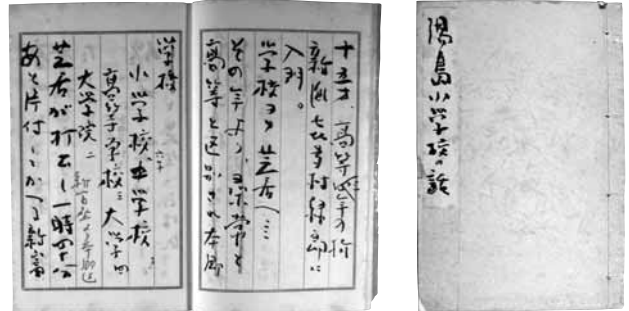 湯島小学校の話
十五才、高等四年の時
新派喜多村緑郎に
入門。
学校ヨリ芝居へ
その年より、尋常と
高等と区別され本郷
学校
小学校 中学校
高等学校三 大学四
大学院二
芝居が打出し一時四十分
あと片付してかへる新富